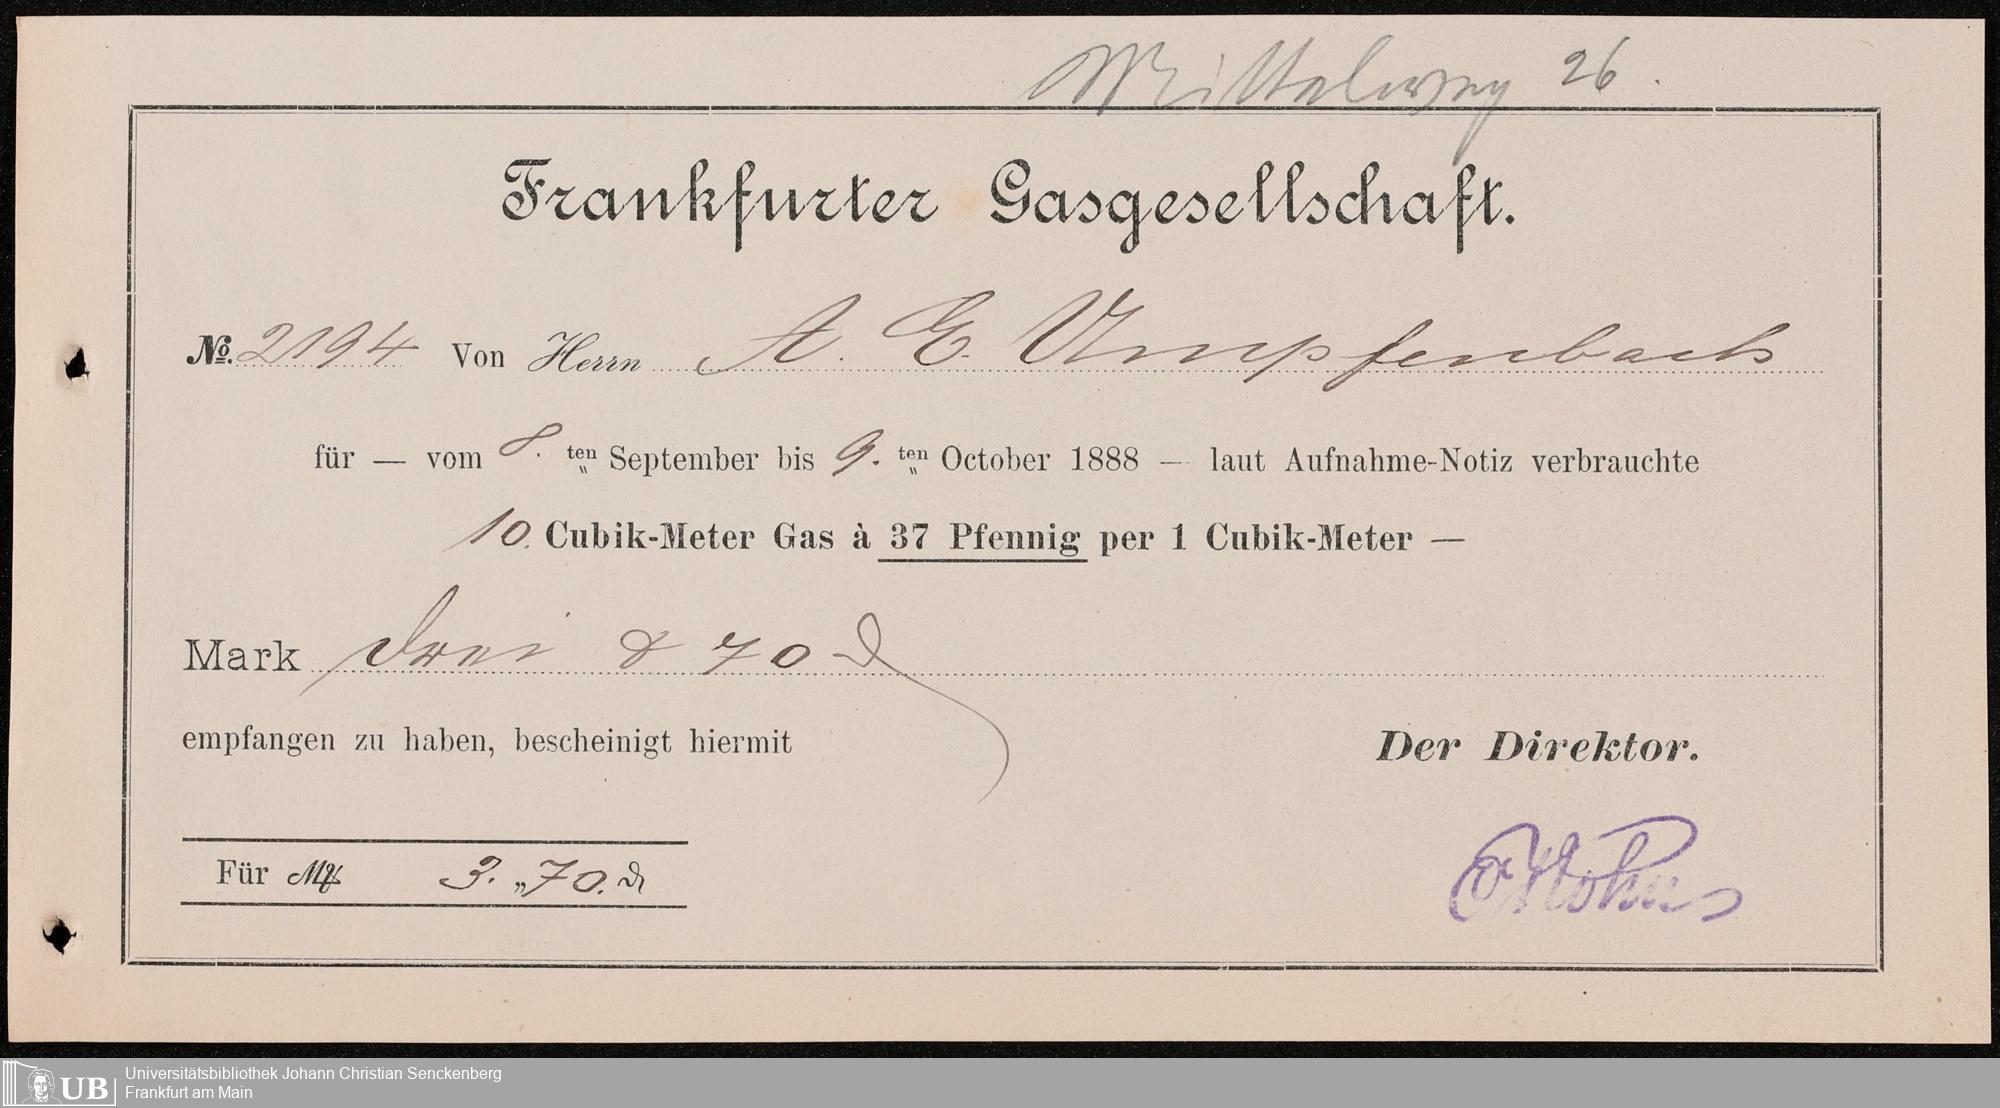 Mittelweg 26.
Frankfurter Gasgesellschaft.
No. 2194 Von Herrn A. E. Umpfenbach
für — vom 8. ten „ September bis 9. ten „ October 1888 — laut Aufnahme-Notiz verbrauchte
10. Cubik-Meter Gas à 37 Pfennig per 1 Cubik-Meter —
Mark drei & 70 ₰
empfangen zu haben, bescheinigt hiermit
Der Direktor.
Für ℳ 3. „ 70. ₰
UB
Universitätsbibliothek Johann Christian Senckenberg
Frankfurt am Main